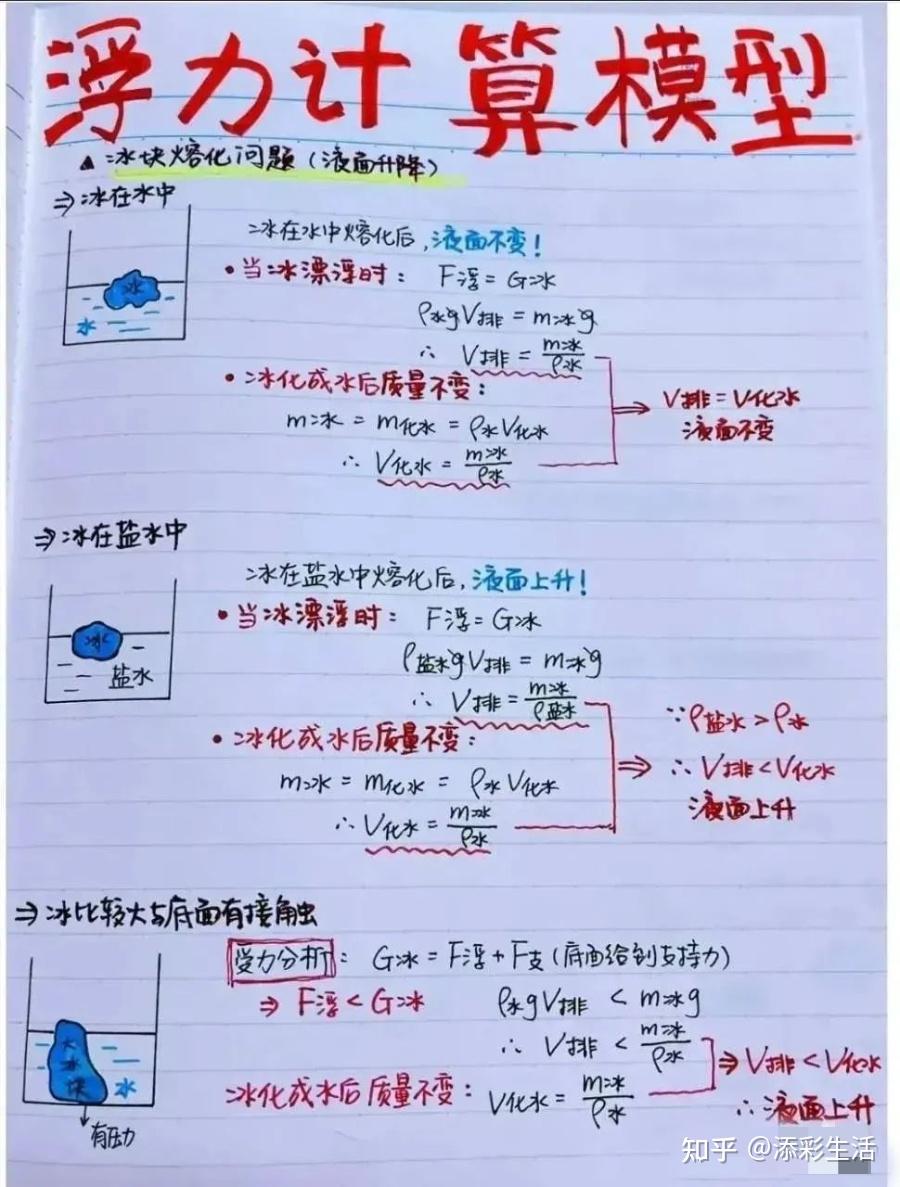 浮力计算模型
▲ 冰块熔化问题（液面升降）
⇒ 冰在水中
冰在水中熔化后，液面不变！
• 当冰漂浮时： F浮 = G冰
ρ水gV排 = m冰g
∴ V排 = m冰/ρ水
冰
水
• 冰化成水后质量不变：
m冰 = m化水 = ρ水V化水
∴ V化水 = m冰/ρ水
⇒ V排 = V化水
液面不变
⇒ 冰在盐水中
冰在盐水中熔化后，液面上升！
• 当冰漂浮时： F浮 = G冰
ρ盐水gV排 = m冰g
∴ V排 = m冰/ρ盐水
冰
盐水
• 冰化成水后质量不变：
m冰 = m化水 = ρ水V化水
∴ V化水 = m冰/ρ水
∵ ρ盐水 > ρ水
⇒ ∴ V排 < V化水
液面上升
⇒ 冰比较大与底面有接触
受力分析： G冰 = F浮 + F支（底面给到支持力）
⇒ F浮 < G冰 ρ水gV排 < m冰g
∴ V排 < m冰/ρ水
大冰块
水
有压力
冰化成水后质量不变： V化水 = m冰/ρ水
⇒ V排 < V化水
∴ 液面上升
知乎 @添彩生活